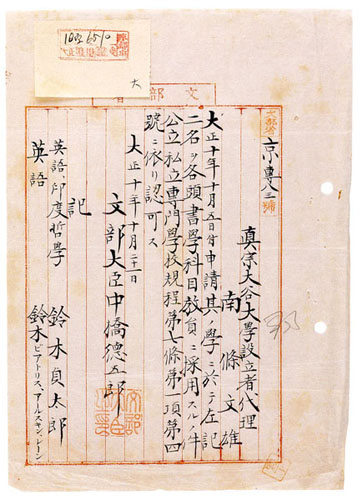 文部省
京專八三號
真宗大谷大學設立者代理
南條文雄
大正十年十月五日付申請其ノ學ニ於テ左記
二名ヲ各頭書學科目教員ニ採用スルノ件
公立私立專門學校規程第七條第一項第四
號ニ依リ認可ス
大正十年十月二十一日
文部大臣中橋德五郎
記
英語、印度哲學 鈴木貞太郎
英語 鈴木ビアトリス、アールスキン、レーン